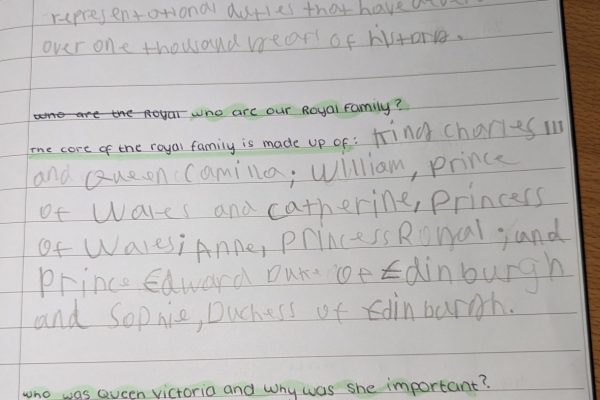 representational duties that have
over one thousand years of history.
who are the Royal who are our Royal Family?
The core of the royal family is made up of: King Charles III
and Queen Camilla; William, Prince
of Wales and Catherine, Princess
of Wales; Anne, Princess Royal; and
Prince Edward Duke of Edinburgh
and Sophie, Duchess of Edinburgh.
who was Queen Victoria and why was she important?